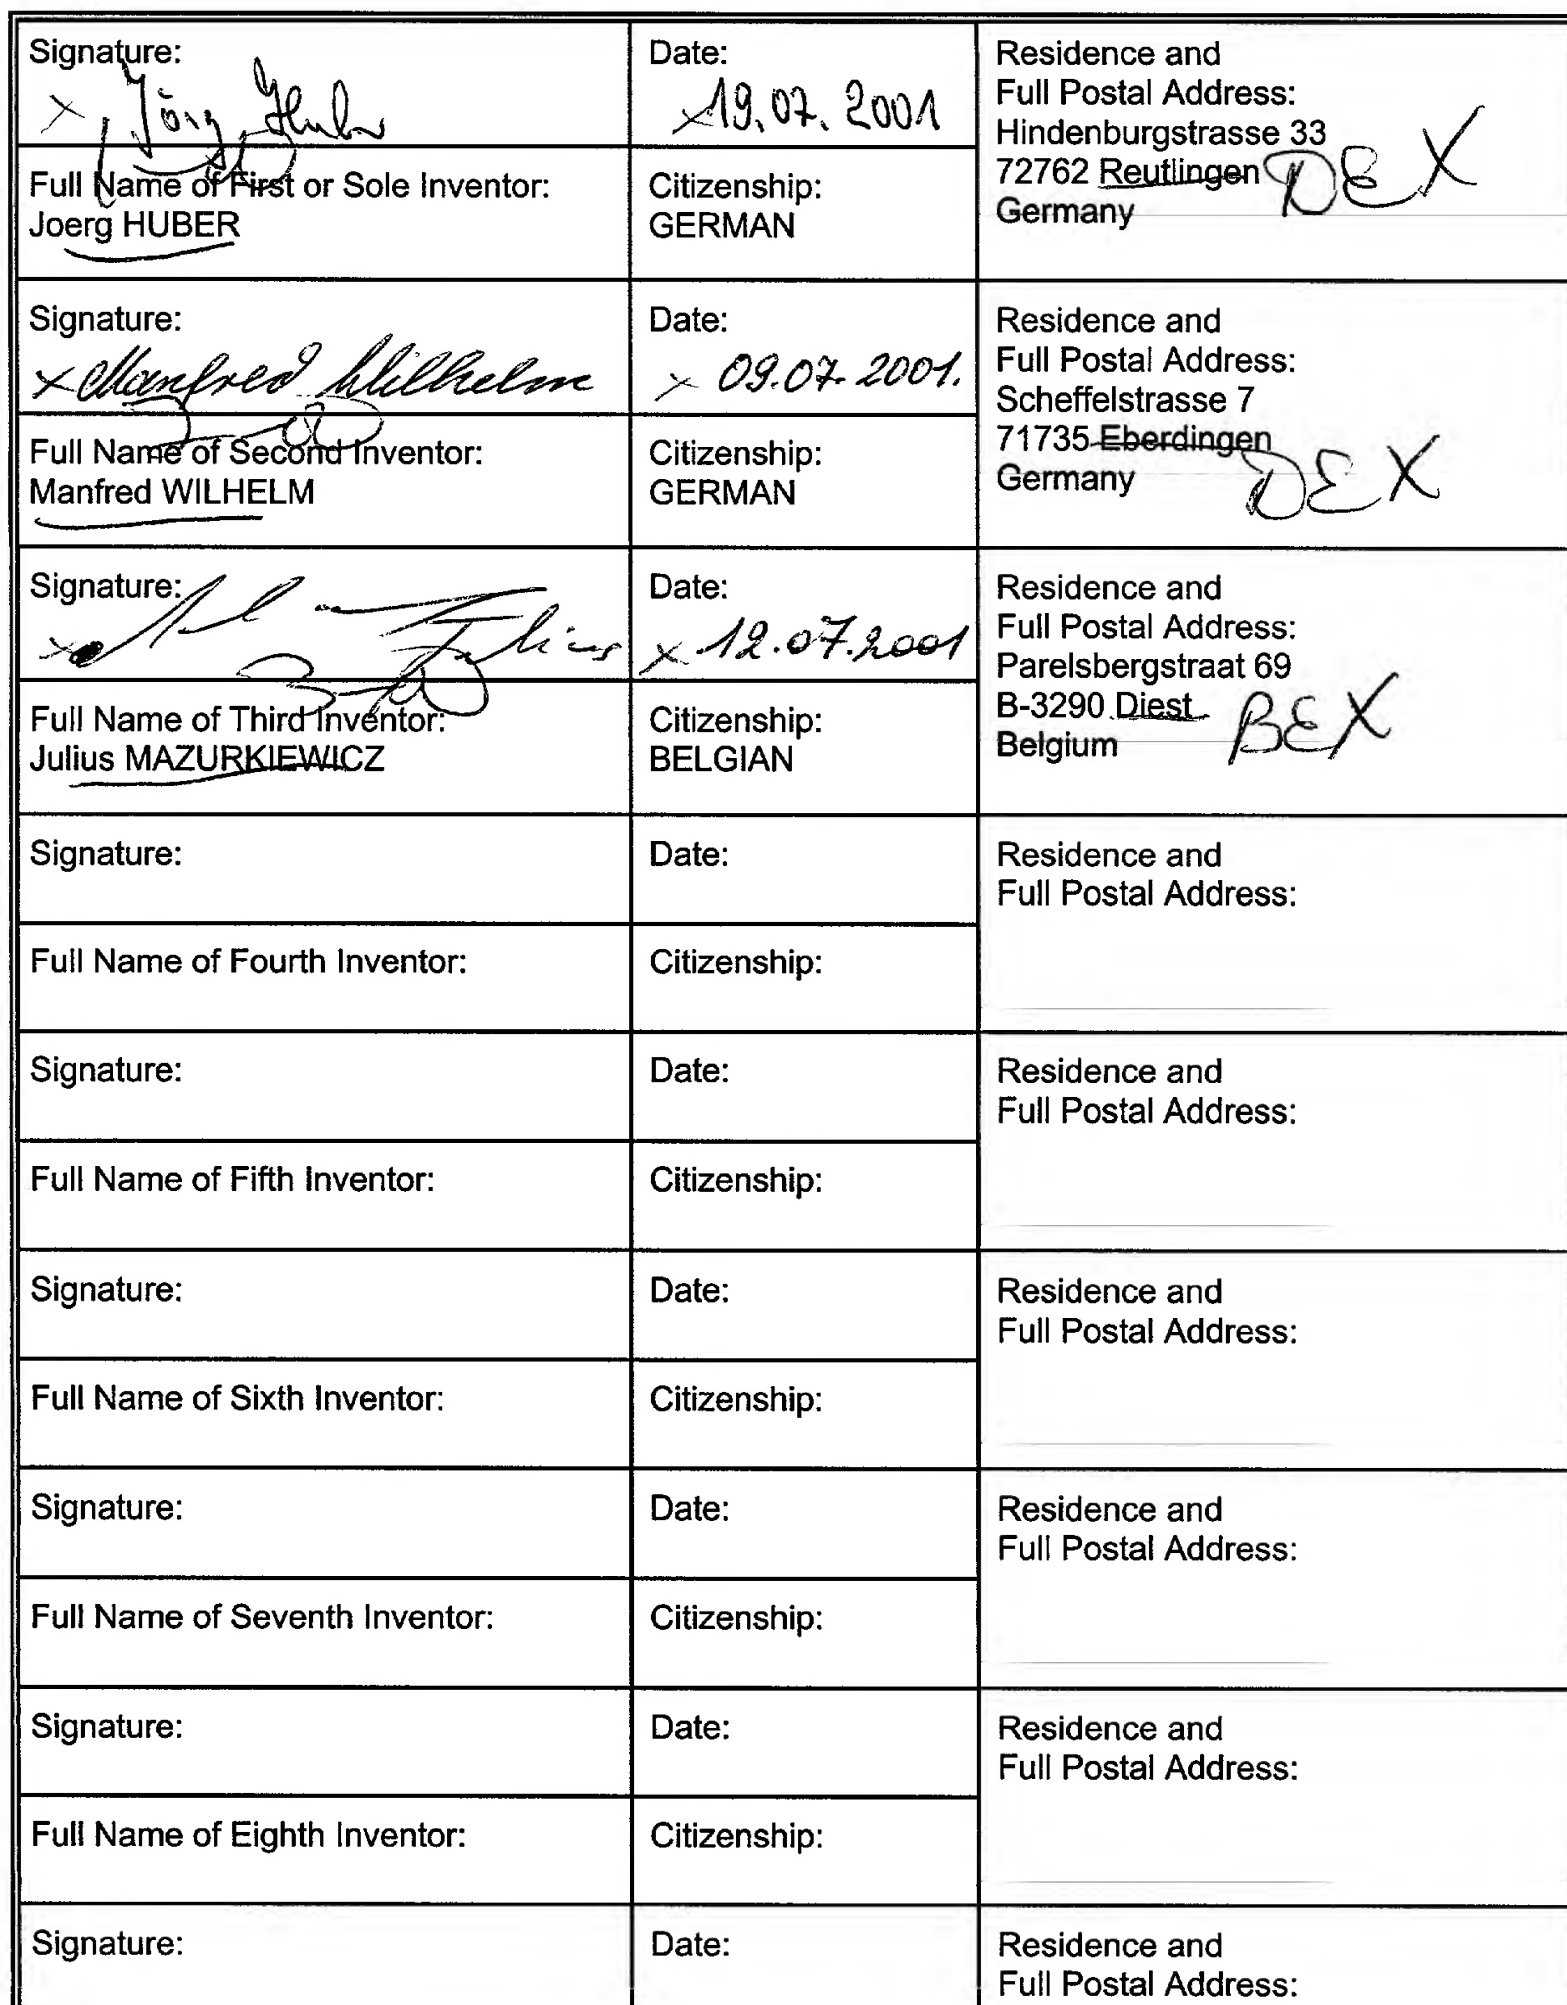 Signature:
× Jörg Huber
Date:
× 19.07.2001
Residence and
Full Postal Address:
Hindenburgstrasse 33
72762 Reutlingen DEX
Germany
Full Name of First or Sole Inventor:
Joerg HUBER
Citizenship:
GERMAN
Signature:
× Manfred Wilhelm
Date:
× 09.07.2001.
Residence and
Full Postal Address:
Scheffelstrasse 7
71735 Eberdingen
Germany DEX
Full Name of Second Inventor:
Manfred WILHELM
Citizenship:
GERMAN
Signature:
× Julius
Date:
× 12.07.2001
Residence and
Full Postal Address:
Parelsbergstraat 69
B-3290 Diest BEX
Belgium
Full Name of Third Inventor:
Julius MAZURKIEWICZ
Citizenship:
BELGIAN
Signature:
Date:
Residence and
Full Postal Address:
Full Name of Fourth Inventor:
Citizenship:
Signature:
Date:
Residence and
Full Postal Address:
Full Name of Fifth Inventor:
Citizenship:
Signature:
Date:
Residence and
Full Postal Address:
Full Name of Sixth Inventor:
Citizenship:
Signature:
Date:
Residence and
Full Postal Address:
Full Name of Seventh Inventor:
Citizenship:
Signature:
Date:
Residence and
Full Postal Address:
Full Name of Eighth Inventor:
Citizenship:
Signature:
Date:
Residence and
Full Postal Address: